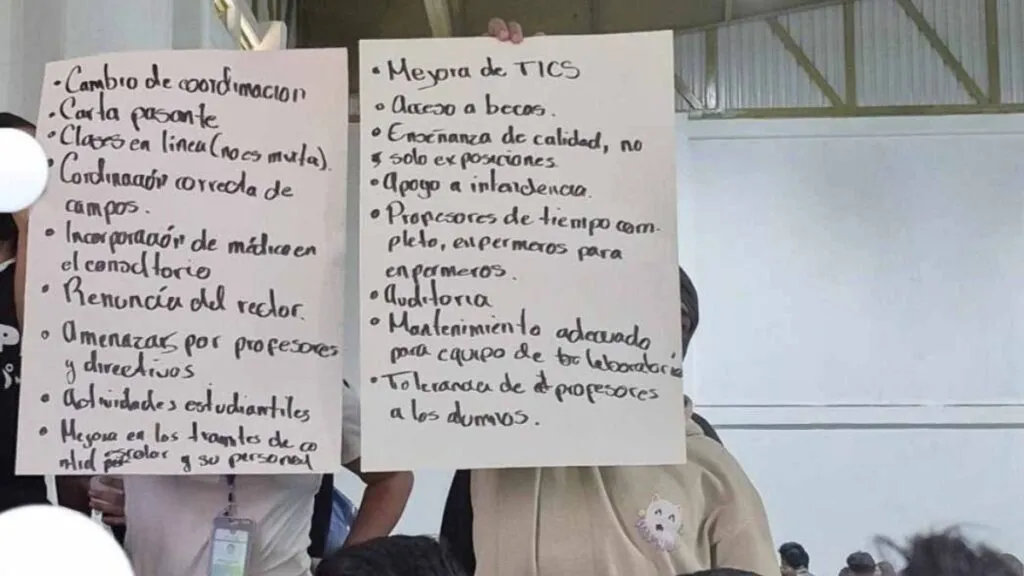 · Cambio de coordinacion
· Carta pasante
· Clases en linea (no es multa).
· Cordinación correcta de
campos.
· Incorporación de médico en
el consultorio
· Renuncia del rector.
· Amenazas por profesores
y directivos
· Actividades estudiantiles
· Mejora en los tramites de co
ntrol escolar y su personal
· Mejora de TICS
· Acceso a becas.
· Enseñanza de calidad, no
solo exposiciones.
· Apoyo a intendencia.
· Profesores de tiempo com-
pleto, enfermeros para
enfermeros.
· Auditoria
· Mantenimiento adecuado
para equipo de laboratorio
· Tolerancia de profesores
a los alumnos.